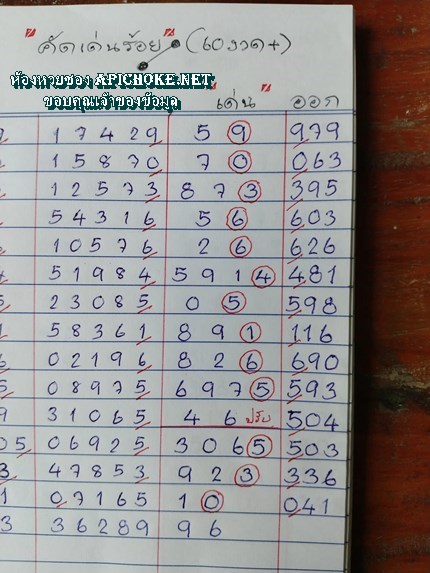 "คัดเด่นร้อย" (60งวด+)
ห้องหวยซอง APICHOKE.NET
ขอบคุณเจ้าของข้อมูล
"เด่น" ออก
17429 59 979
15870 70 063
12573 873 395
54316 56 603
10576 26 626
4 51984 5914 481
5 23085 05 598
1 58361 891 116
6 02196 826 690
5 08975 6975 593
9 31065 46 ปรับ 504
05 06925 3065 503
3 47853 923 336
1 07165 10 041
3 36289 96